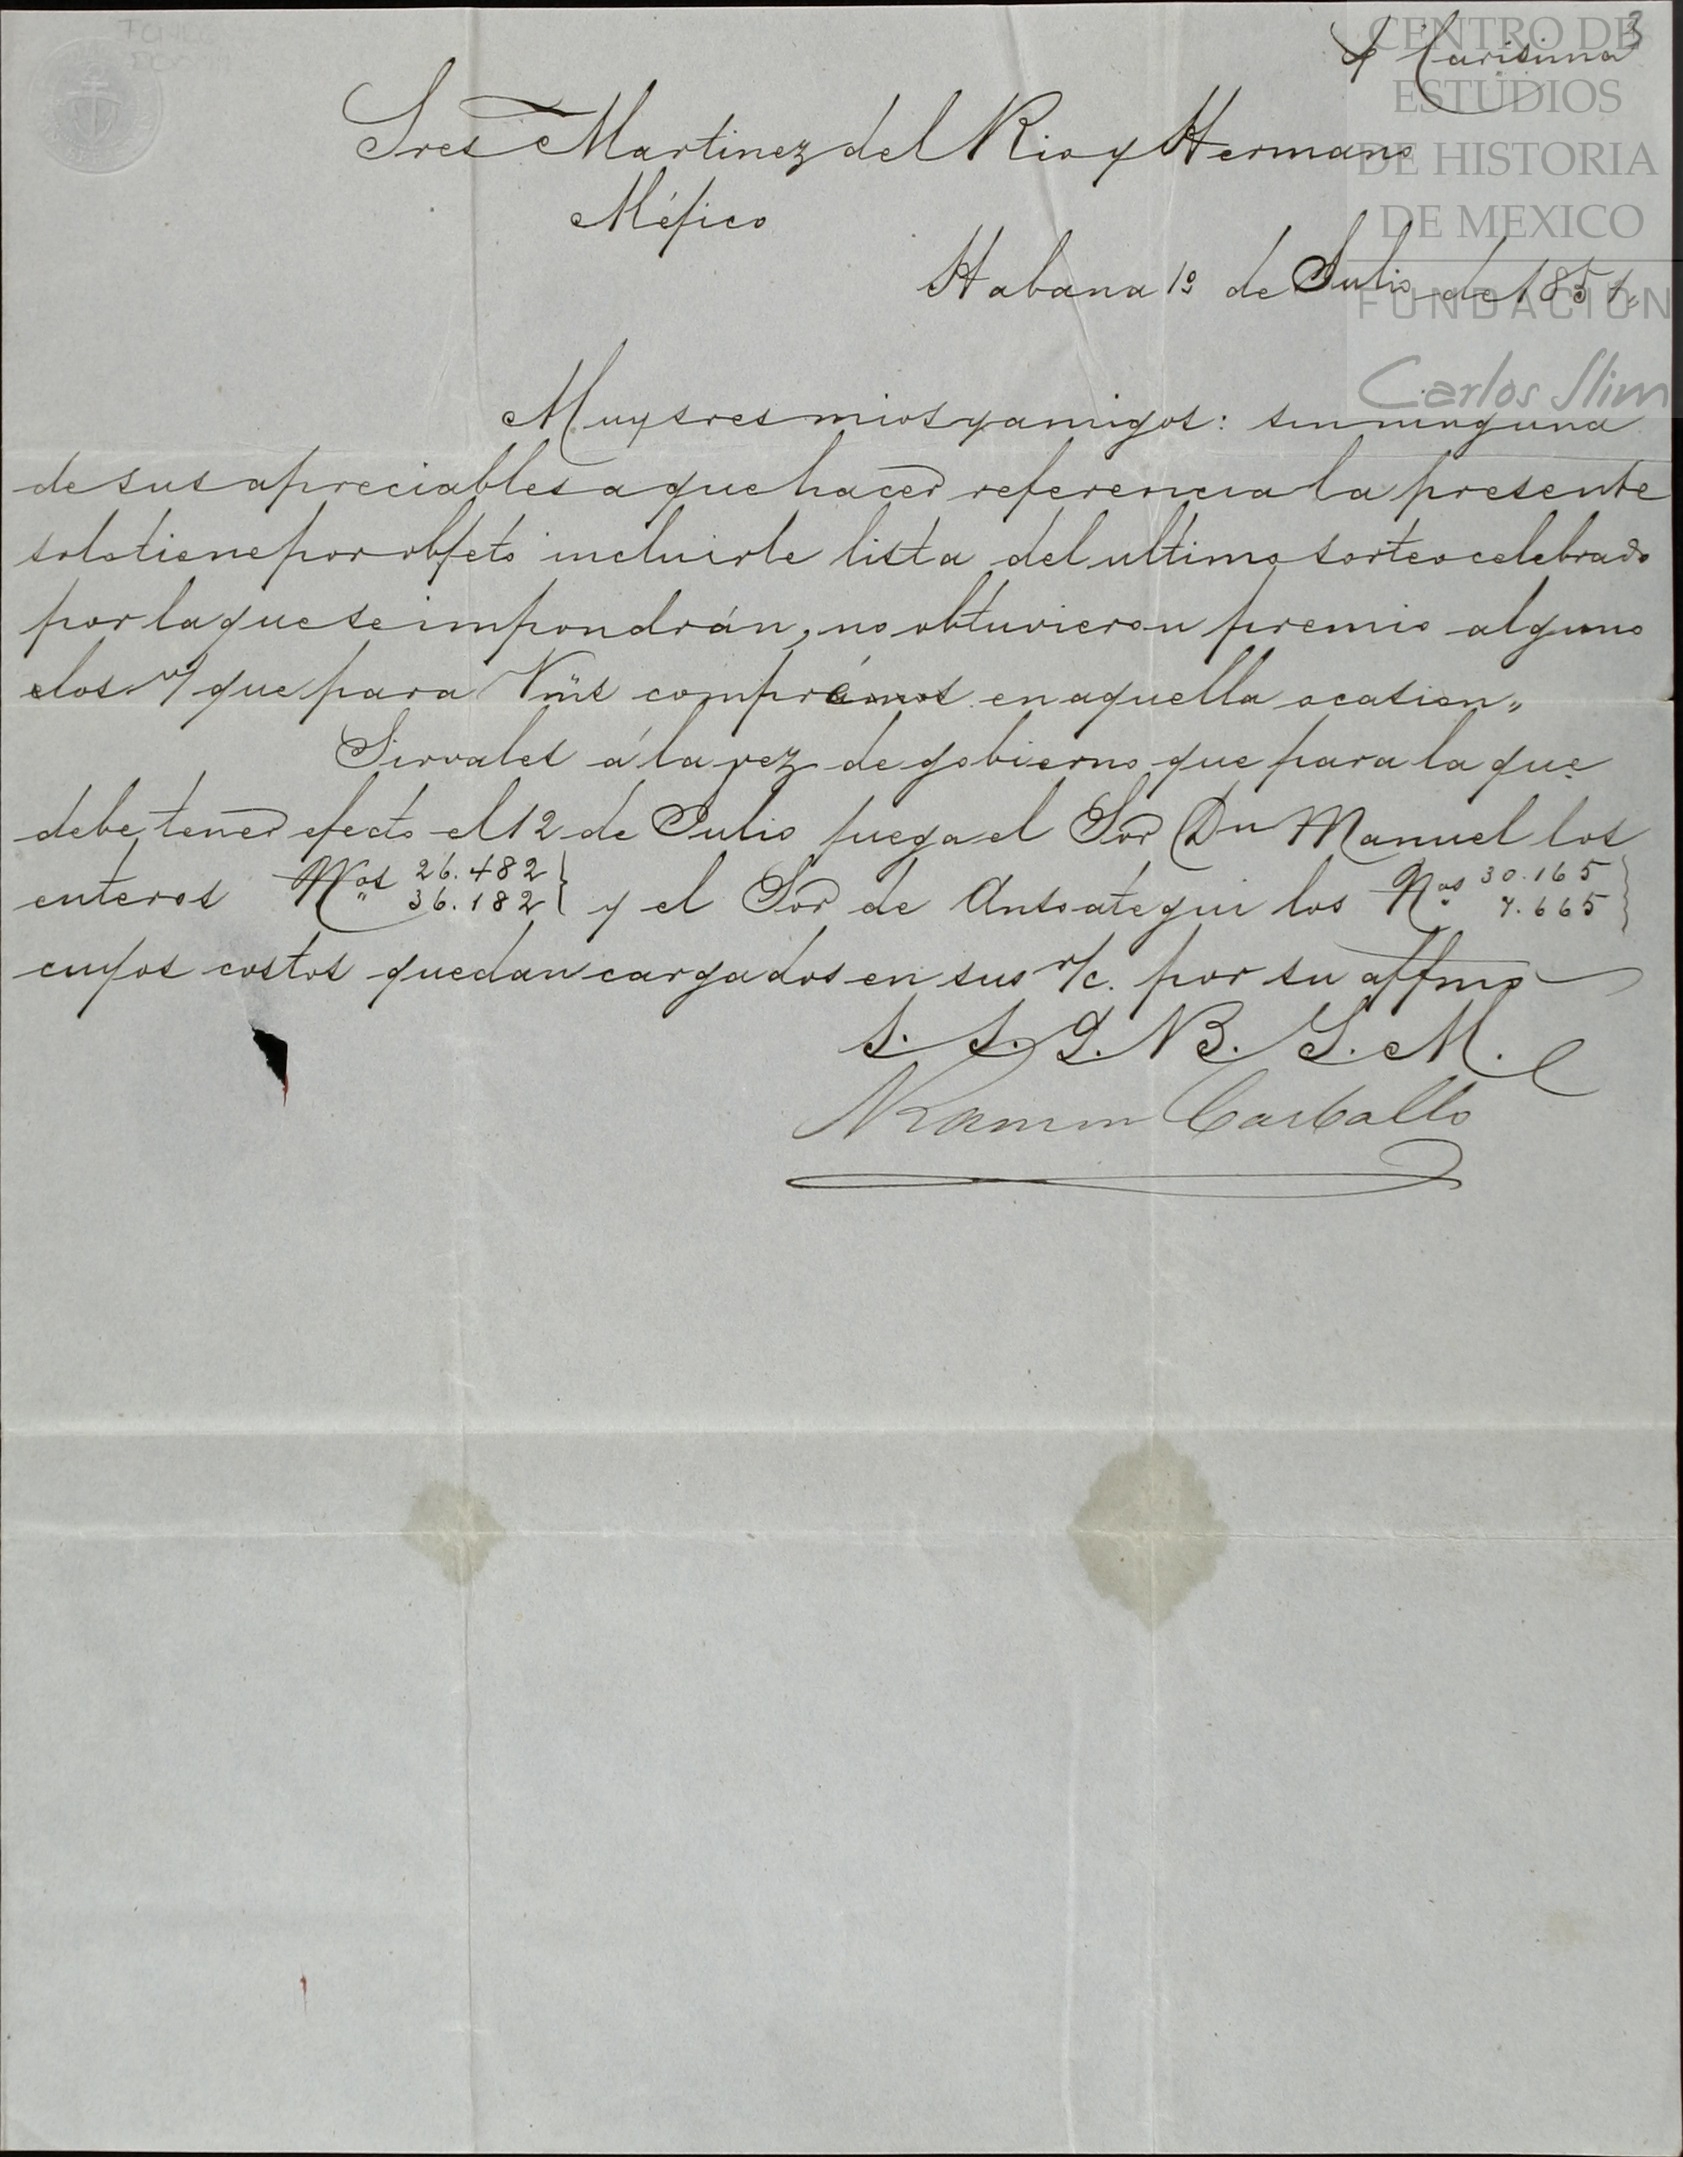 3
CENTRO DE
ESTUDIOS
DE HISTORIA
DE MEXICO
FUNDACIÓN
Carlos Slim
Sres Martinez del Rio y Hermano
Méjico
Habana 1º de Julio de 1851,,
Muy sres mios y amigos: sin ninguna
de sus apreciables a que hacer referencia la presente
solo tiene por objeto incluirle lista del ultimo sorteo celebrado
por la que se impondrán, no obtuvieron premio alguno
los que para Vms comprámos en aquella ocasion,,
Sirvales á la vez de gobierno que para la que
debe tener efecto el 12 de Julio juega el Sor Dn Manuel los
enteros Nos 26.482 36.182 } y el Sor de Ansoategui los Nos 30.165 7.665 }
cuyos costos quedan cargados en sus r/c. por su affmo
S. S. Q. B. S. M.
Ramon Carballo